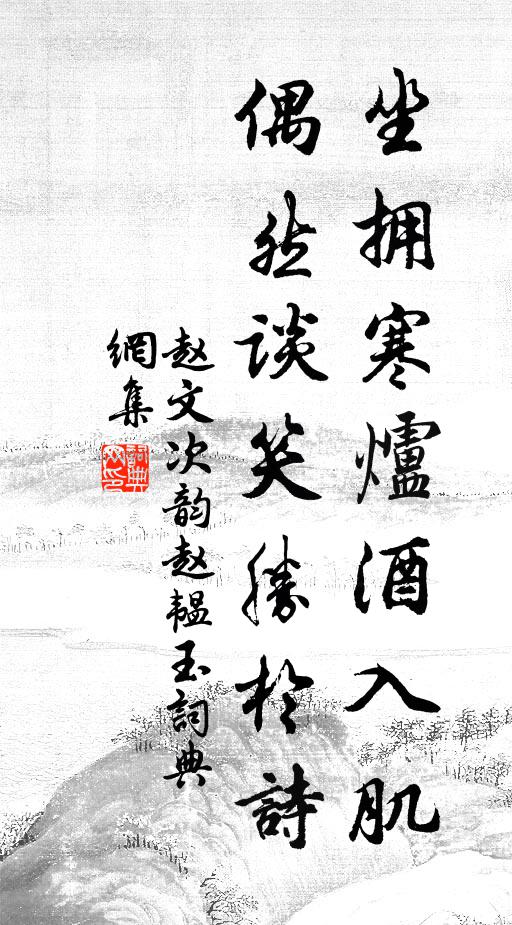 坐拥寒爐酒入肌
偶然談笑勝於詩
赵文次韵赵韫玉詞典
網集
詞典網印